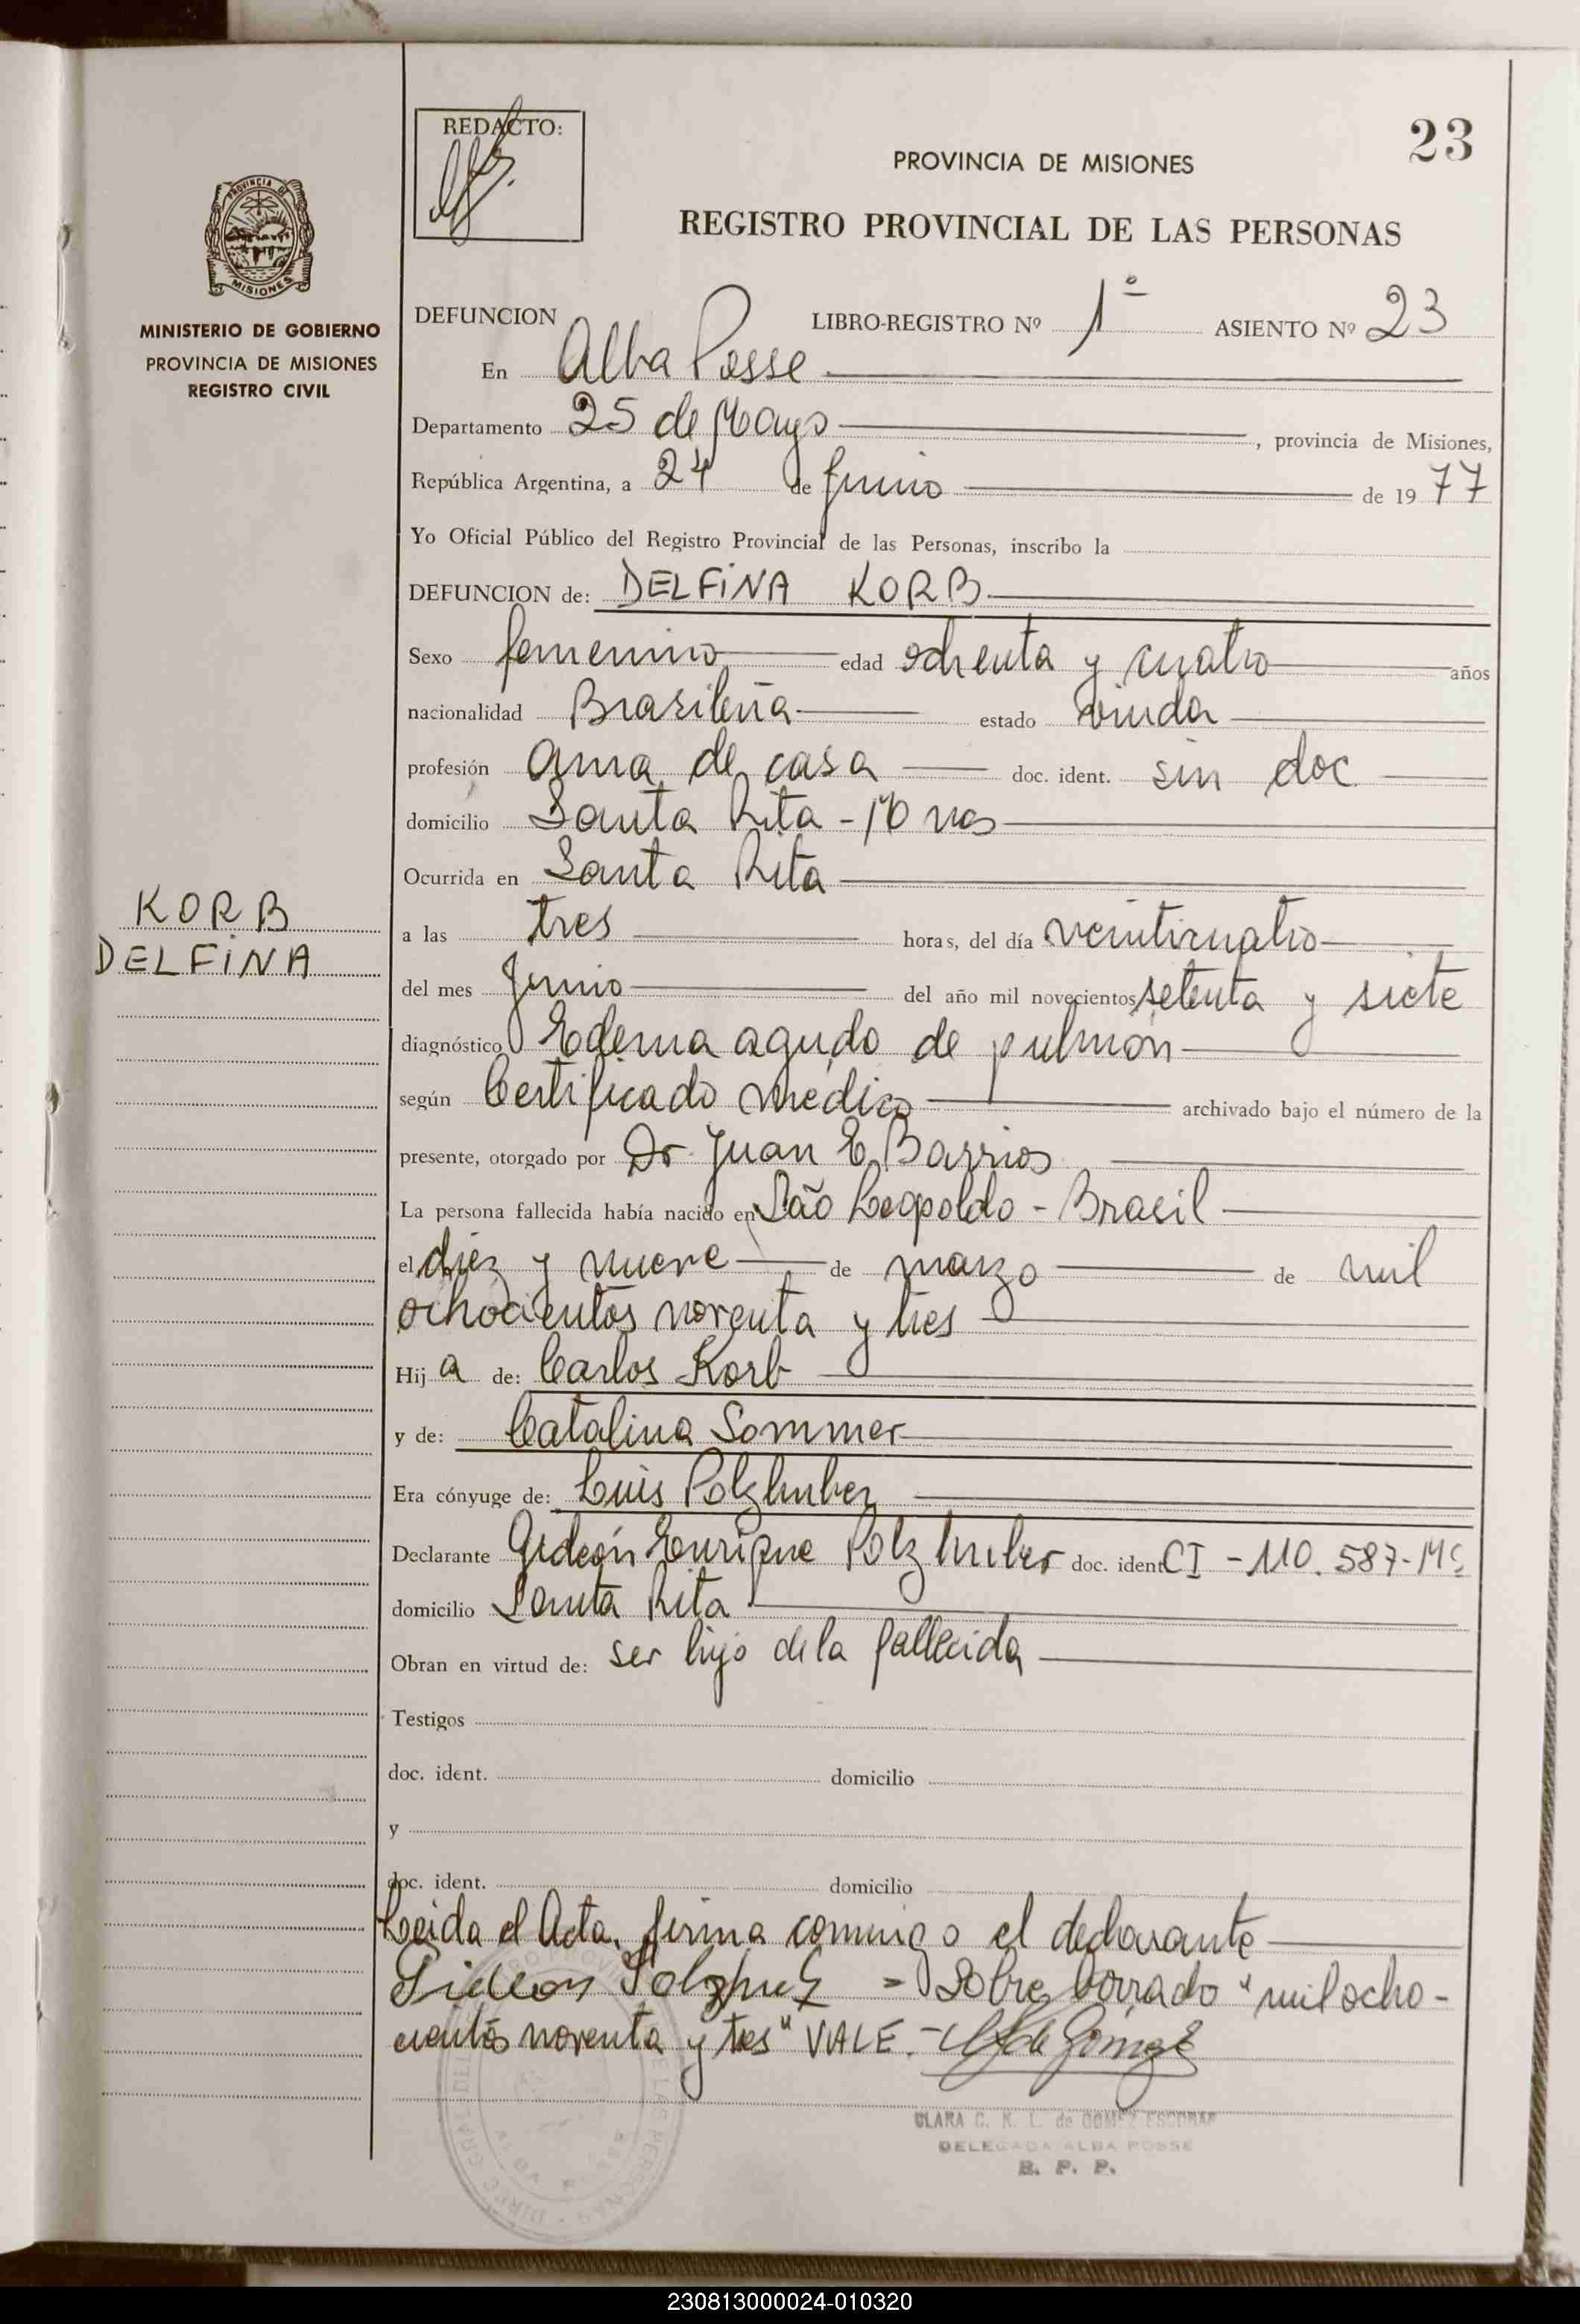 23
REDACTO:
PROVINCIA DE MISIONES
REGISTRO PROVINCIAL DE LAS PERSONAS
PROVINCIA DE
MISIONES
MINISTERIO DE GOBIERNO
PROVINCIA DE MISIONES
REGISTRO CIVIL
DEFUNCION LIBRO-REGISTRO Nº 1º ASIENTO Nº 23
En Alba Posse
Departamento 25 de Mayo, provincia de Misiones,
República Argentina, a 24 de Junio de 1977
Yo Oficial Público del Registro Provincial de las Personas, inscribo la
DEFUNCION de: DELFINA KORB
Sexo femenino edad ochenta y cuatro años
nacionalidad Brasileña estado viuda
profesión ama de casa doc. ident. sin doc
domicilio Santa Rita - Mnes
Ocurrida en Santa Rita
KORB
DELFINA
a las tres horas, del día veinticuatro
del mes Junio del año mil novecientos setenta y siete
diagnóstico Edema agudo de pulmón
según Certificado médico archivado bajo el número de la
presente, otorgado por Dr. Juan E Barrios
La persona fallecida había nacido en São Leopoldo - Brasil
el diez y nueve de marzo de mil
ochocientos noventa y tres
Hija de: Carlos Korb
y de: Catalina Sommer
Era cónyuge de: Luis Polzhuber
Declarante Gideón Enrique Polzhuber doc. ident CI - 110.587 - Ms
domicilio Santa Rita
Obran en virtud de: ser hijo de la fallecida
Testigos
doc. ident. domicilio
y
doc. ident. domicilio
Leida el Acta, firma conmigo el declarante
Gideon = Sobre borrado "mil ocho-
cientos noventa y tres" VALE.-
CLARA C. N. L. de GOMEZ ESCOBAR
DELEGADA ALBA POSSE
R. P. P.
230813000024-010320